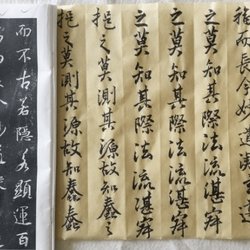 而長今妙道
之莫知其際法流湛寂
之莫知其際法流湛寂
挹之莫測其源故知蠢蠢
挹之莫測其源故知蠢蠢
而不古若隱若顯運百